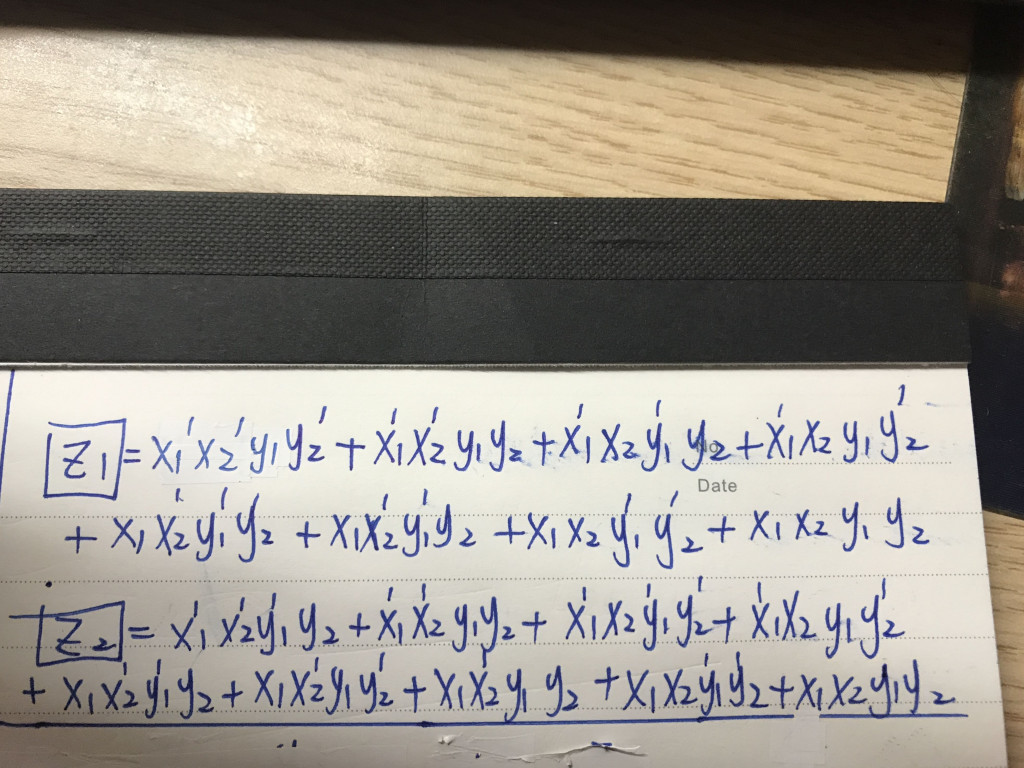 Z₁ = x₁'x₂'y₁y₂' + x₁'x₂'y₁y₂ + x₁'x₂y₁'y₂ + x₁'x₂y₁y₂'
Date
+ x₁x₂'y₁'y₂' + x₁x₂'y₁'y₂ + x₁x₂y₁'y₂' + x₁x₂y₁y₂
Z₂ = x₁'x₂'y₁'y₂ + x₁'x₂'y₁y₂ + x₁'x₂y₁'y₂' + x₁'x₂y₁y₂'
+ x₁x₂'y₁'y₂ + x₁x₂'y₁y₂' + x₁x₂'y₁y₂ + x₁x₂y₁'y₂' + x₁x₂y₁y₂